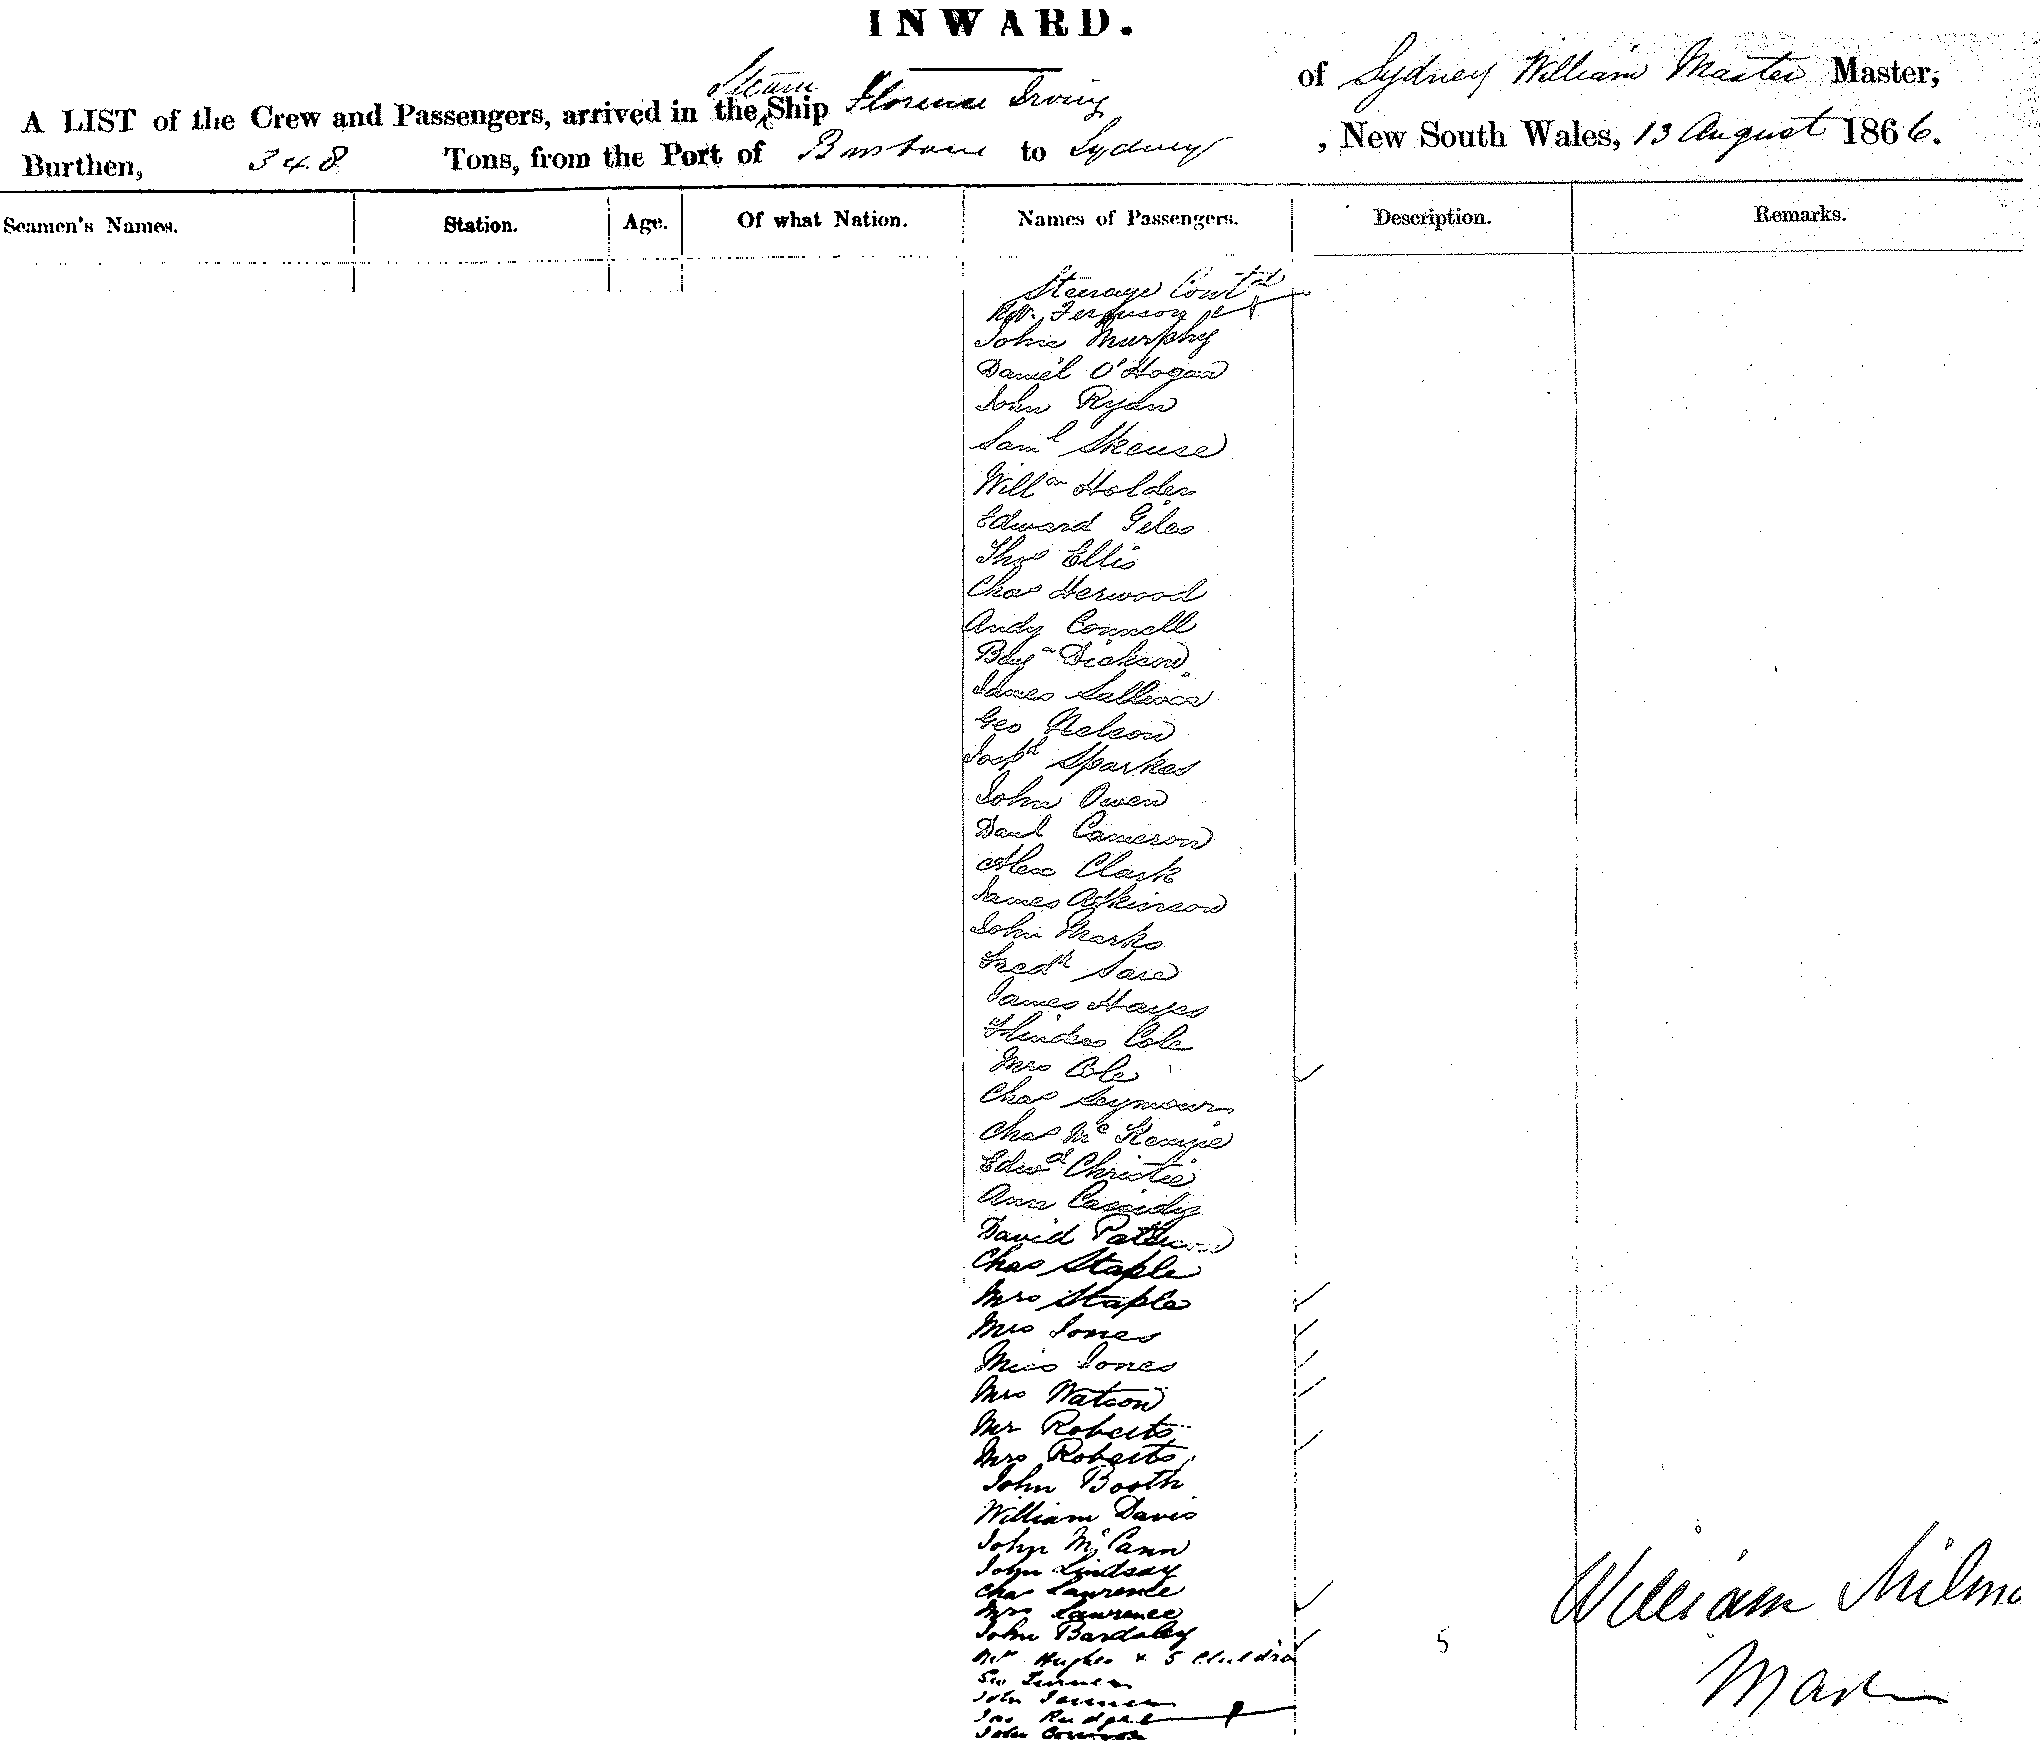 INWARD.
A LIST of the Crew and Passengers, arrived in the Steam Ship Florence Irving of Sydney William Master Master,
Burthen, 348 Tons, from the Port of Brisbane to Sydney , New South Wales, 13 August 1866.
Seamen's Names. Station. Age. Of what Nation. Names of Passengers. Description. Remarks.
Steerage Contd
Ferguson
John Murphy
Daniel O'Hogan
John Ryan
Saml Skeuse
Willm Holder
Edward Giles
Thos Ellis
Chas Herwood
Andy Connell
Benjn Dickson
James Sullivan
Geo Nelson
Sparkes
John Owen
Danl Cameron
Alex Clark
James Atkinson
John Marks
Fredk Sare
James Hayes
Flinders Cole
Mrs Cole
Chas Seymour
Chas McKenzie
Edwd Christie
Ann Cassidy
David Patterson
Chas Staple
Mrs Staple
Mrs Jones
Miss Jones
Mrs Watson
Mr Roberts
Mrs Roberts
John Booth
William Davis
John McCann
John Lindsay
Chas Lawrence
Mrs Lawrence
John Bardsley
Hughes + 5 Children 5
Geo Turner
John
Jas Rudge
John Connor
William Milm
Mas